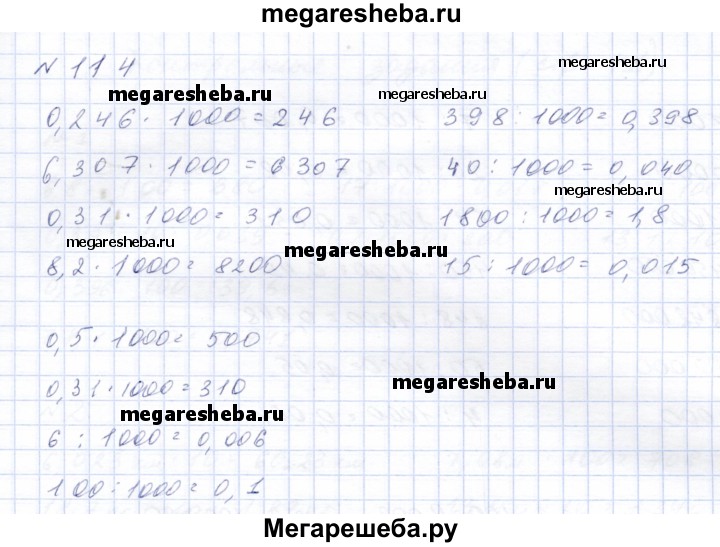 megaresheba.ru
№ 114
megaresheba.ru
megaresheba.ru
megaresheba.ru
0,246 · 1000 = 246 398 : 1000 = 0,398
6,307 · 1000 = 6307 40 : 1000 = 0,040
megaresheba.ru
0,31 · 1000 = 310 1800 : 1000 = 1,8
megaresheba.ru
megaresheba.ru
8,2 · 1000 = 8200 15 : 1000 = 0,015
0,5 · 1000 = 500
0,31 · 1000 = 310
megaresheba.ru
megaresheba.ru
6 : 1000 = 0,006
100 : 1000 = 0,1
Мегарешеба.ру